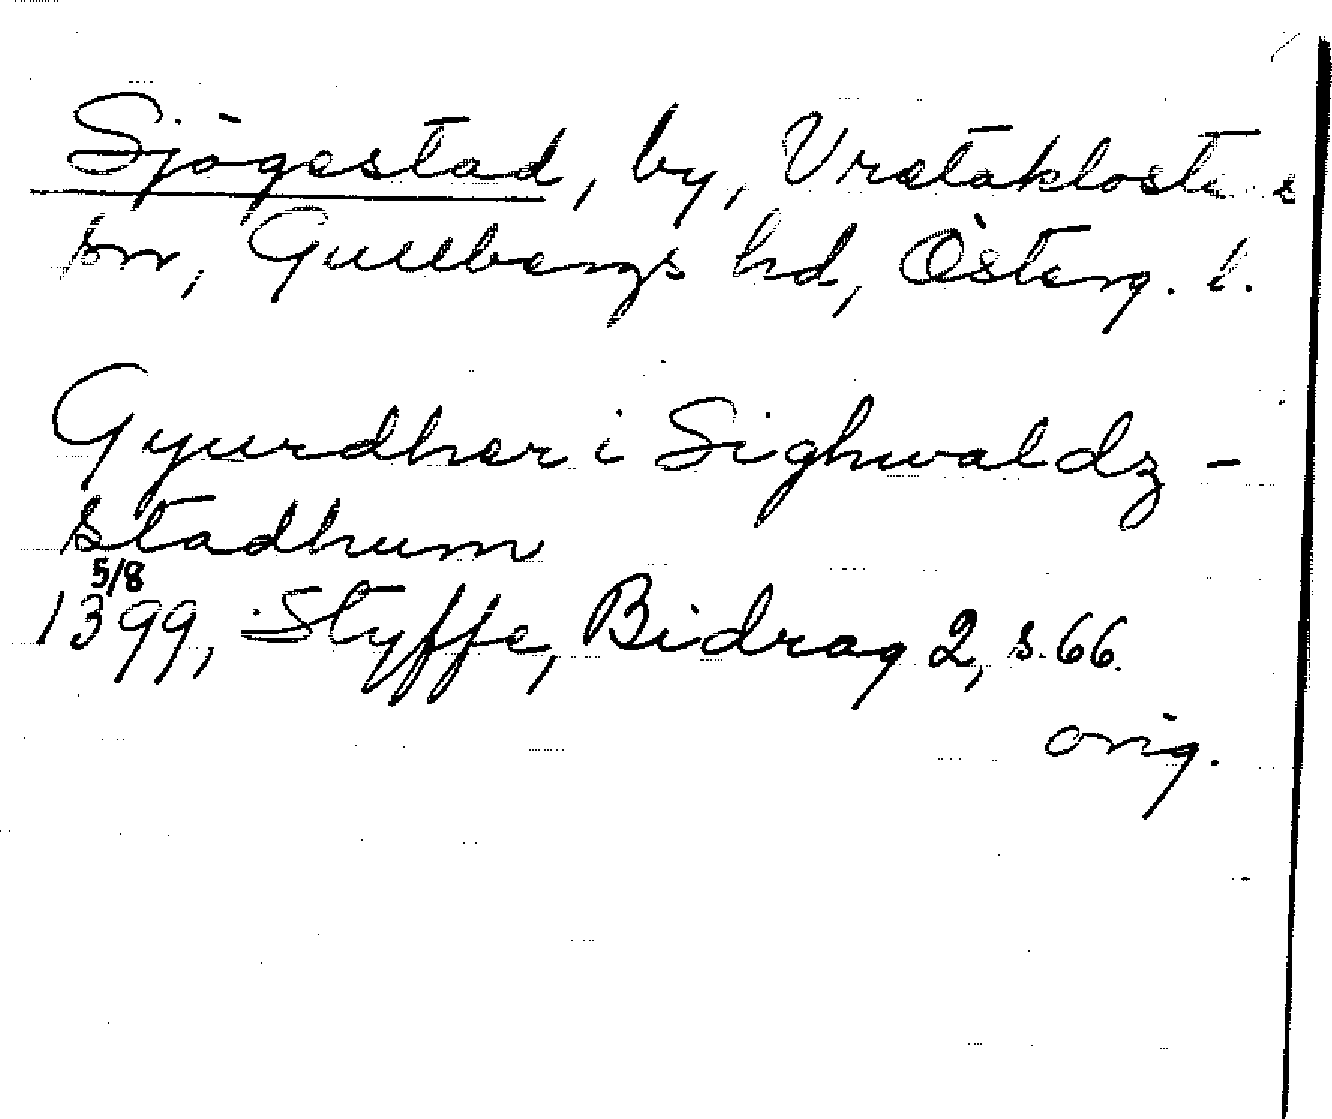 Sjögestad, by, Vretaklosters
sn, Gullbergs hd, Österg. l.
Gyurdher i Sighwaldz-
stadhum
5/8
1399, Styffe, Bidrag 2, s. 66.
orig.